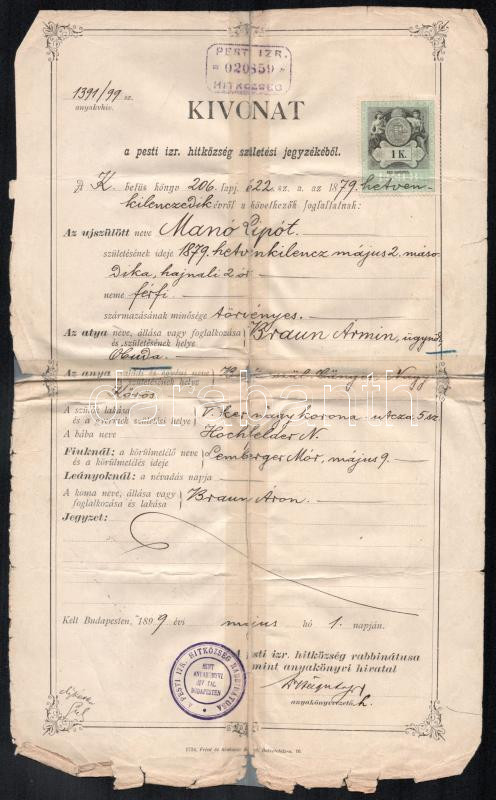 PEST IZR.
020859
HITKÖZSÉG
1391/99 sz.
anyakvhiv.
KIVONAT
1 K.
a pesti izr. hitközség születési jegyzékéből.
A K. betüs könyv 206. lapj. 622. sz. a. az 1879. hetven-
kilenczedik évről a következők foglaltatnak:
Az ujszülött neve Manó Lipót.
születésének ideje 1879. hetvenkilencz május 2. máso-
dika, hajnali 2 ór
neme férfi.
származásának minősége törvényes.
Az atya neve, állása vagy foglalkozása és születésének helye Braun Ármin, ügynök
Óbuda.
Az anya neve
születésének helye Nagy
Körös
A szülők lakása és a gyermek születési helye V. ker. nagykorona utcza 5 sz
A bába neve Hochfelder N.
Fiuknál: a körülmetélő neve és a körülmetélés ideje Lemberger Mór, május 9.
Leányoknál: a névadás napja
A koma neve, állása vagy foglalkozása és lakása Braun Áron.
Jegyzet:
darabanth
Kelt Budapesten, 1899 évi május hó 1. napján.
A pesti izr. hitközség rabbinátusa
mint anyakönyvi hivatal
A PESTI IZR. HITKÖZSÉG RABBINÁTUSA
MINT
ANYAKÖNYVI
HIVATAL
BUDAPESTEN
anyakönyvvezető h.